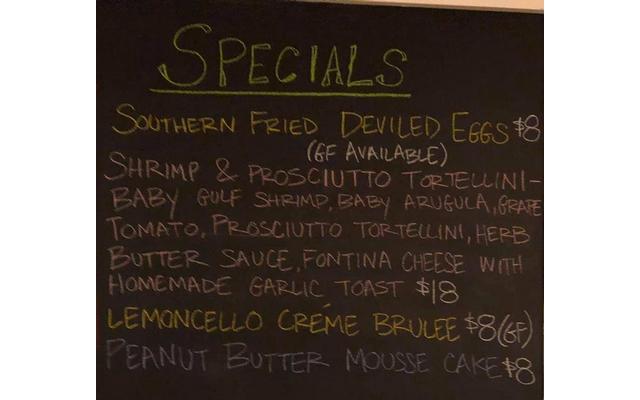 SPECIALS
SOUTHERN FRIED DEVILED EGGS $8
(GF AVAILABLE)
SHRIMP & PROSCIUTTO TORTELLINI-
BABY GULF SHRIMP, BABY ARUGULA, GRAPE
TOMATO, PROSCIUTTO TORTELLINI, HERB
BUTTER SAUCE, FONTINA CHEESE WITH
HOMEMADE GARLIC TOAST $18
LEMONCELLO CRÉME BRULEE $8(GF)
PEANUT BUTTER MOUSSE CAKE $8